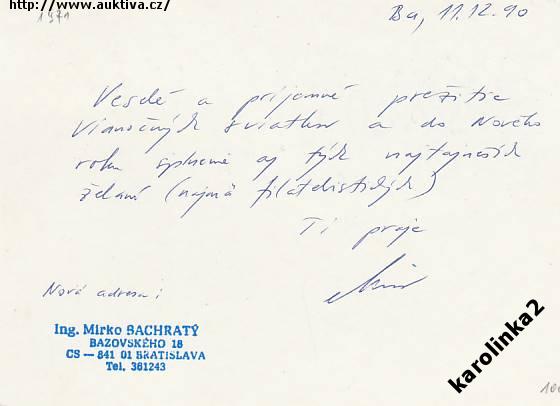 http://www.auktiva.cz/
1971
Ba, 11.12.90
Veselé a príjemné prežitie
Vianočných sviatkov a do Nového
roku splnenie aj tých najtajnejších
želaní (najmä filatelistických)
Ti praje
Nová adresa:
Ing. Mirko BACHRATÝ
BAZOVSKÉHO 18
CS — 841 01 BRATISLAVA
Tel. 361243
karolinka2